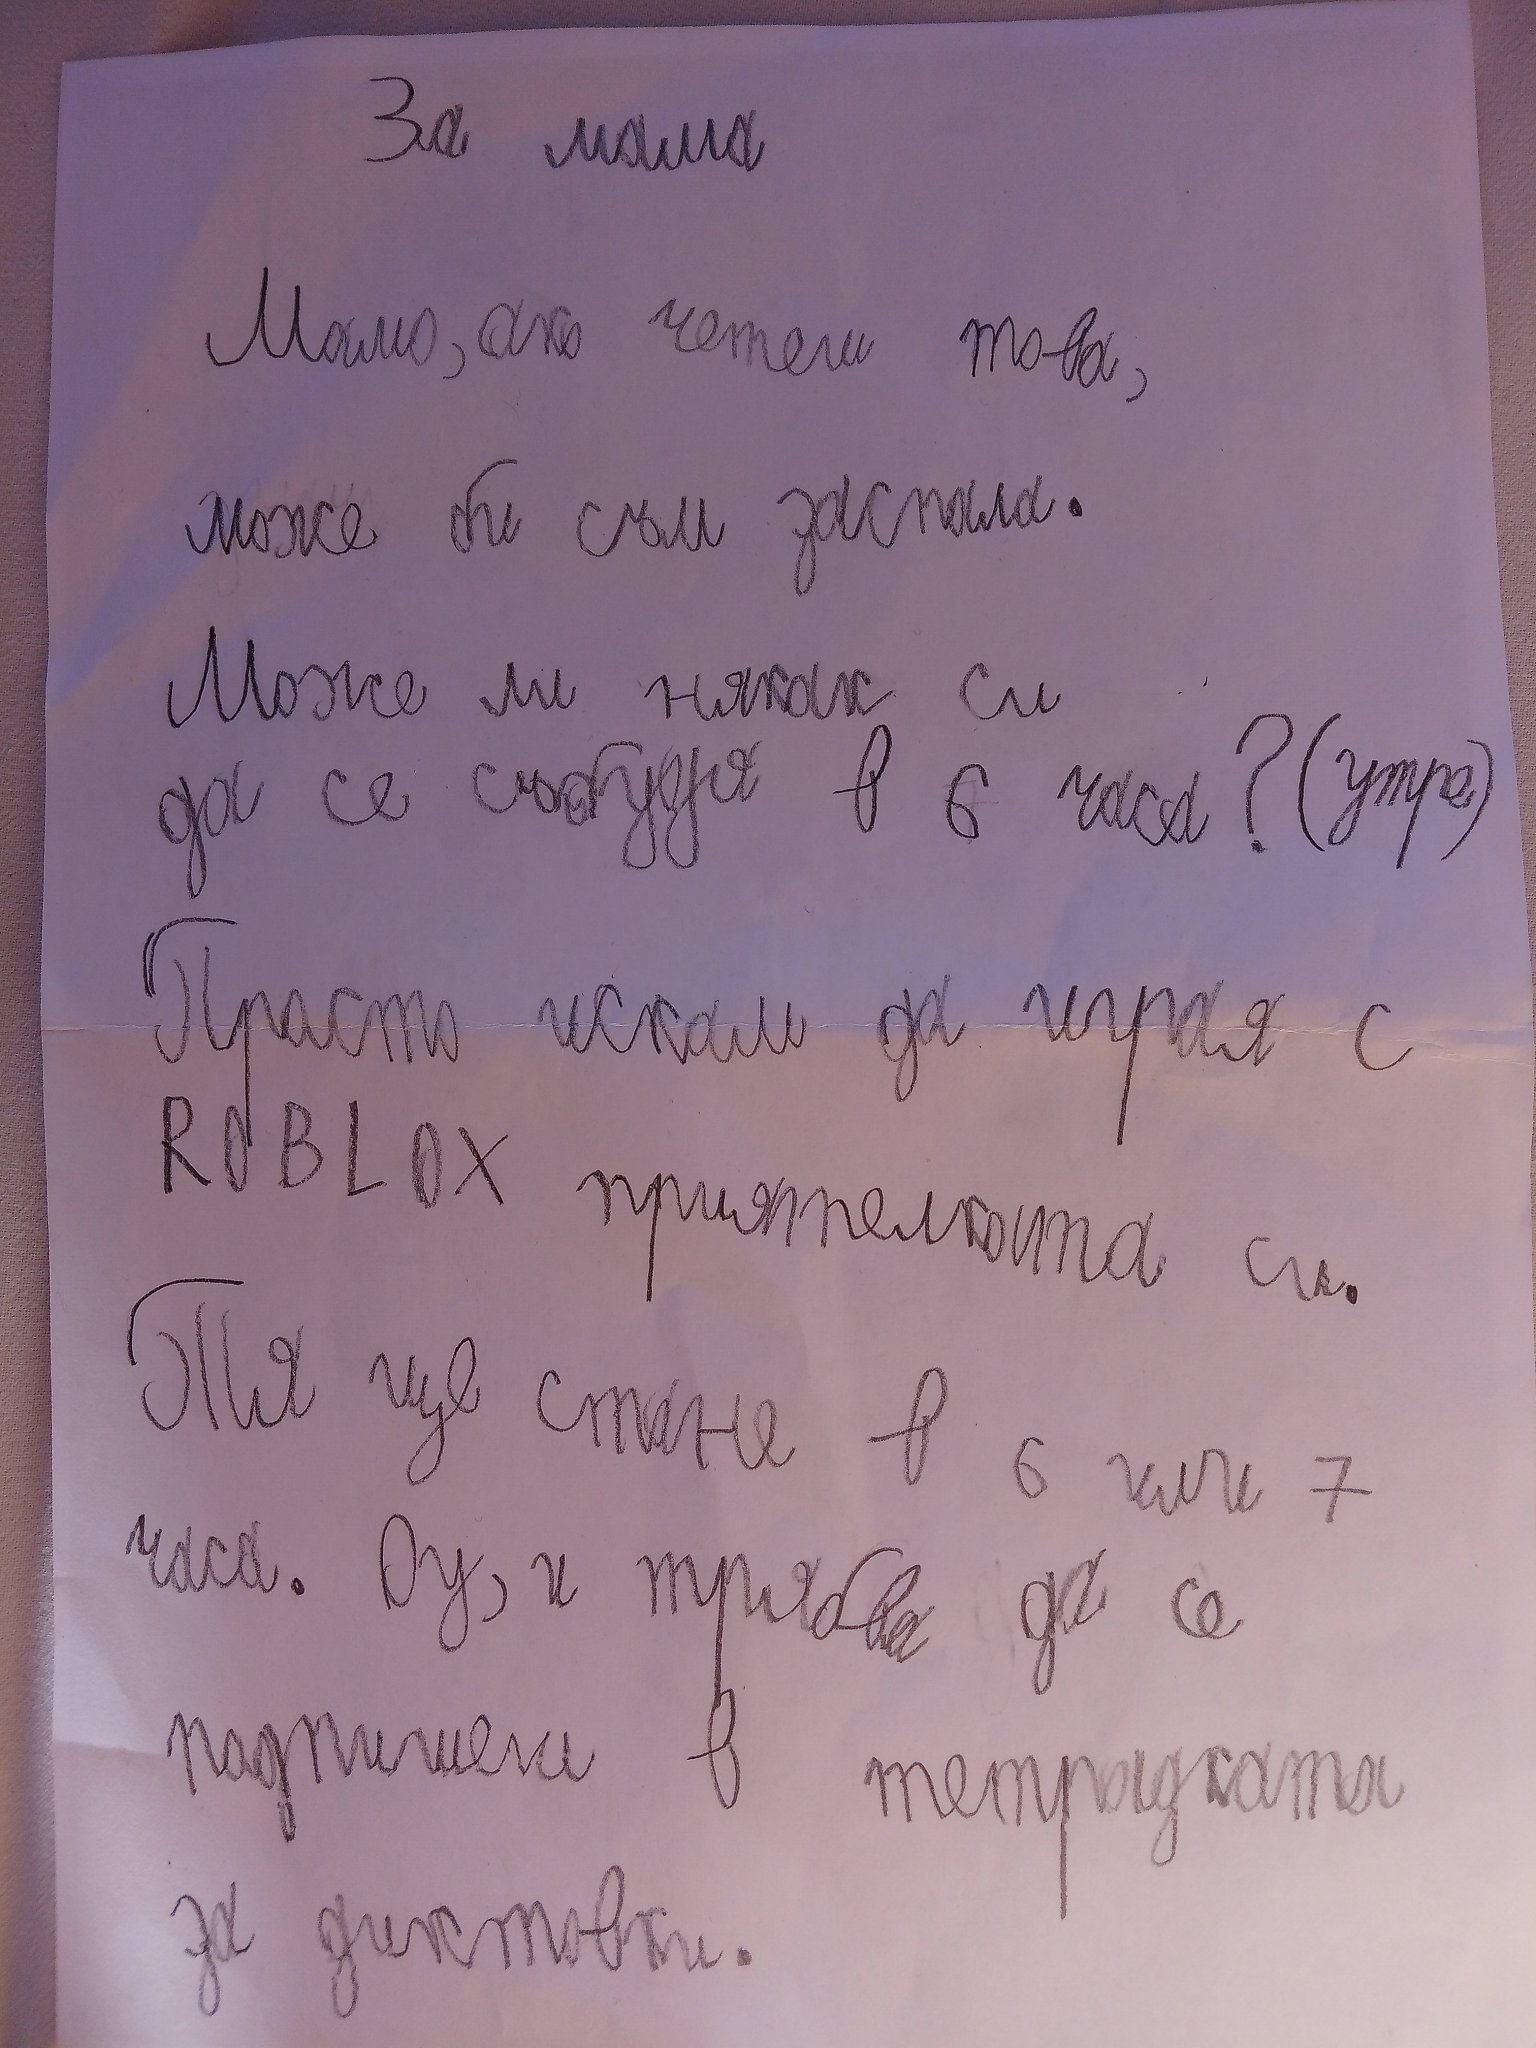 За мама
Мамо, ако четеш това,
може би съм заспала.
Може ли някак си
да се събудя в 6 часа? (утре)
Просто искам да играя с
ROBLOX приятелката си.
Тя ще стане в 6 или 7
часа. Оу, и трябва да се
подпишеш в тетрадката
за диктовки.